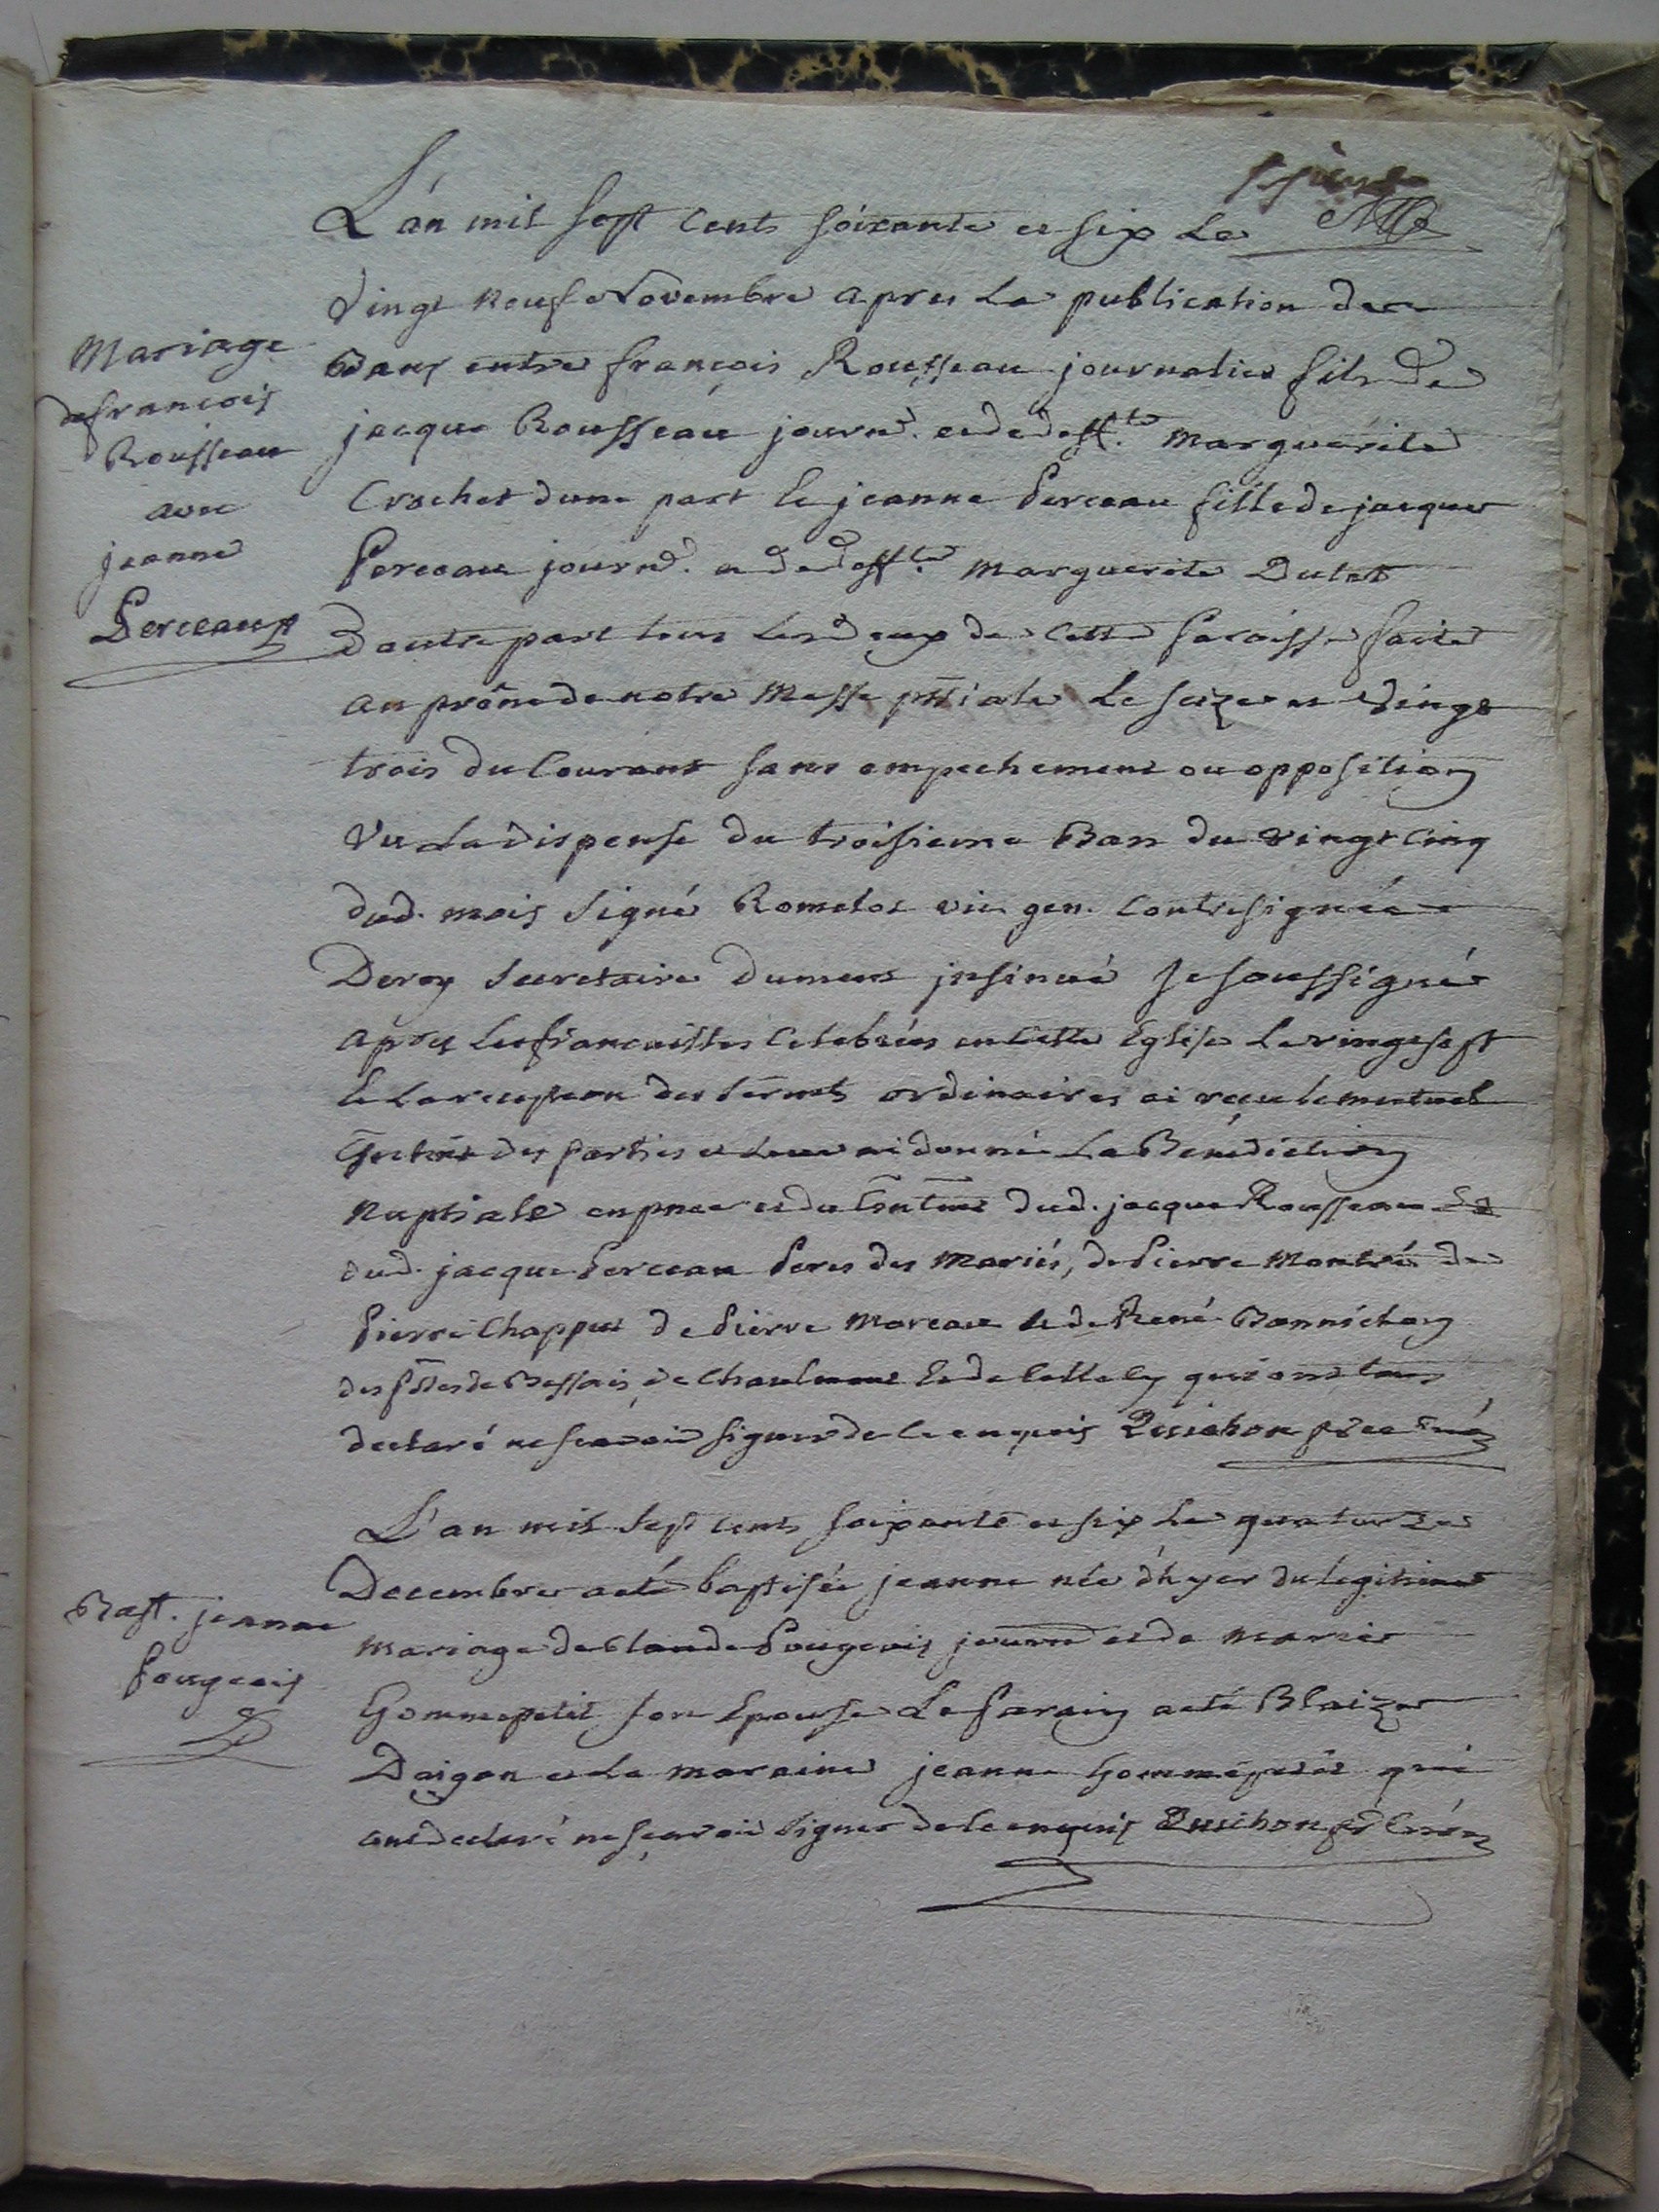 L'an mil sept cents soixante et six Le
Vingt neuf Novembre apres La publication de
Bans entre françois Rousseau journalier fils de
Mariage
de françois
Rousseau
avec
jeanne
Perceau
jacque Rousseau journ. et de deff.te Marguerite
Crochet dune part Et jeanne Perceau fille de jacque
Perceau journ. et de deff.te Marguerite Dutet
Dautre part tous les deux de cette Paroisse faite
au prône de notre Messe pssiale Le seize et Vingt
trois du Courant sans empechement ou opposition
Vu La dispense du troisieme Ban du vingt cinq
dud. mois signé Romelot vic. gen. Contresignée
Deroy Secretaire dument insinué Je soussigné
apres Les fiancailles Celebrées en Cette Eglise Le vingt sept
Et La reception des serm.ts ordinaires ai reçu le mutuel
Cons̄tm̄t des Parties et Leur ai donné La Benediction
Nuptiale en pnce et du Cons̄tm̄t dud. jacque Rousseau
dud. jacque Perceau Peres des Mariés, de Pierre Montré de
Pierre Chappus de Pierre Moreau et de René
des psses de Bessais de Chaulmont Et de Celle Cy qui ont tous
declaré ne scavoir signer de Ce enquis
L'an mil Sept cents soixante et six Le quatorze
Decembre a eté baptisée jeanne née d'hyer du legitime
Bapt. jeanne
Pougeois
mariage de Claude Pougeois journ et de Marie
Gommepetit son Epouse Le Parain a eté Blaize
Daigon et La maraine jeanne Gommepetit qui
ont declaré ne scavoir signer de Ce enquis